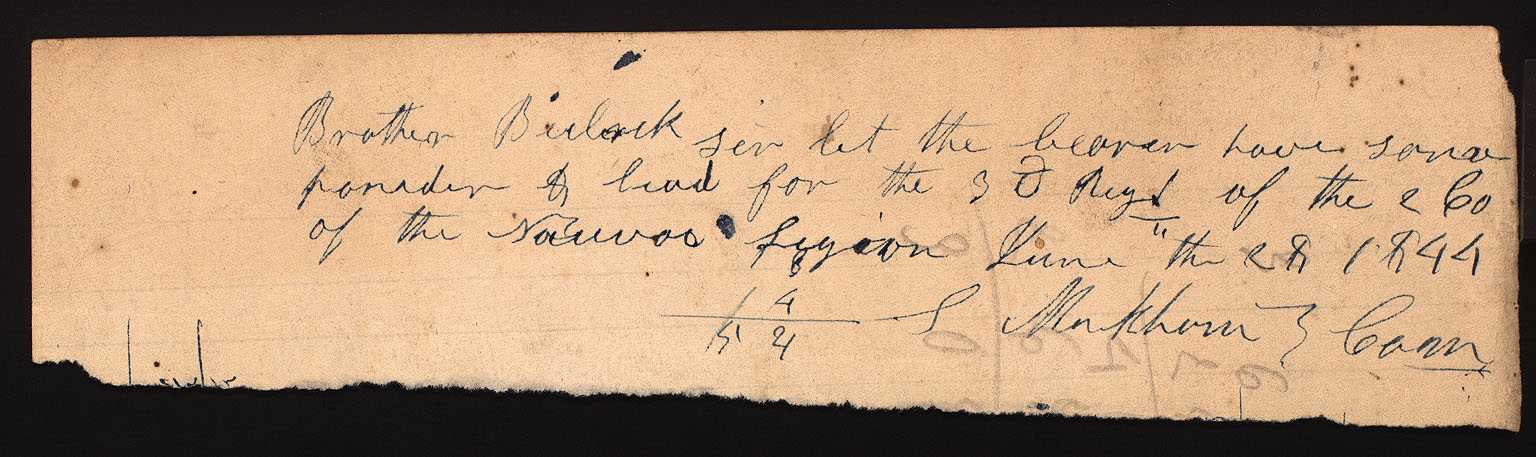 Brother Bulock sir let the bearer have some
pouader & lead for the 3 D Regt of the 2 Co
of the Nauvoo Legion June the 28 1844
S Markham } Com